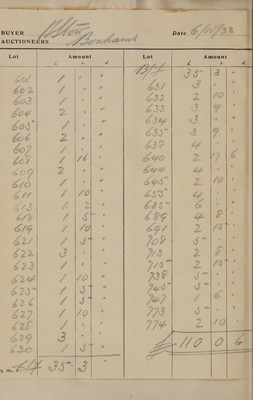 BUYER Stow Date 6/10/38
AUCTIONEERS Bonhams
Lot Amount Lot Amount
£ s. d. £ s. d.
B/f 35 3 "
601 1 " "
602 1 " "
603 1 " "
604 2 " "
605 1 " "
606 2 " "
607 1 " "
608 1 16 "
609 2 " "
610 1 " "
611 1 10 "
613 1 2 "
618 1 5 "
619 1 10 "
621 1 5 "
622 3 " "
623 1 " "
624 1 10 "
625 1 5 "
626 1 5 "
627 1 10 "
628 1 " "
629 3 " "
630 1 5 "
C/f 35 3 "
631 3 " "
632 2 10 "
633 3 9 "
634 3 " "
635 3 9 "
638 4 " "
640 2 17 6
644 4 " "
645 2 10 "
655 4 " "
685 6 " "
689 4 8 "
691 2 15 "
708 5 " "
713 2 8 "
715 2 15 "
738 5 " "
745 5 " "
747 1 6 "
773 5 " "
774 2 10 "
£ 110 0 6